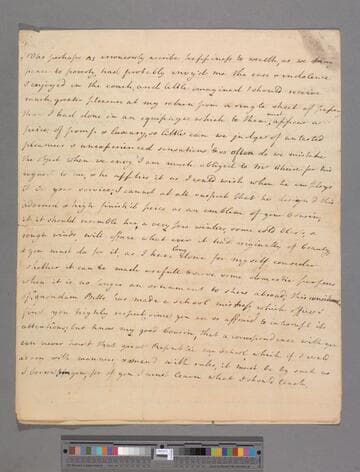 Was perhaps as erroneously ascribe happiness to wealth, as we
peace to poverty, had probably envy'd me the ease & indolence
I enjoyed in the coach, and little imagined I should receive
much greater pleasure at my return from a single sheet of paper
than I had done in an equipage which to them must appear a
piece of pomp & luxury, so little can we judge of untasted
pleasures & unexperienced sensations & so often do we mistake
the Object when we envy. I am much obliged to Mr for his
regard to me, & he applies it as I could wish when he employs
it in your service; I cannot at all suspect that he design'd this
adorned & high finish'd piece as an emblem of your Cousin,
if it should resemble her, a very few winters, some cold
rough winds, will efface what ever it had originally of beauty
& you must do for it, as I have long done for myself consider
whether it can be made usefull to serve some domestic purpose
when it is no longer an ornament to shew abroad. This
of quondam Belle has made a school mistress which
you highly respect, since you are so affraid to interrupt its
attentions, but know my good Cousin, that a correspondence with you
can never hurt that great Republic our School which if I would
adorn with manners, & amend with rules, it must be by such as
I borrow from you, for of you I must learn what I should teach